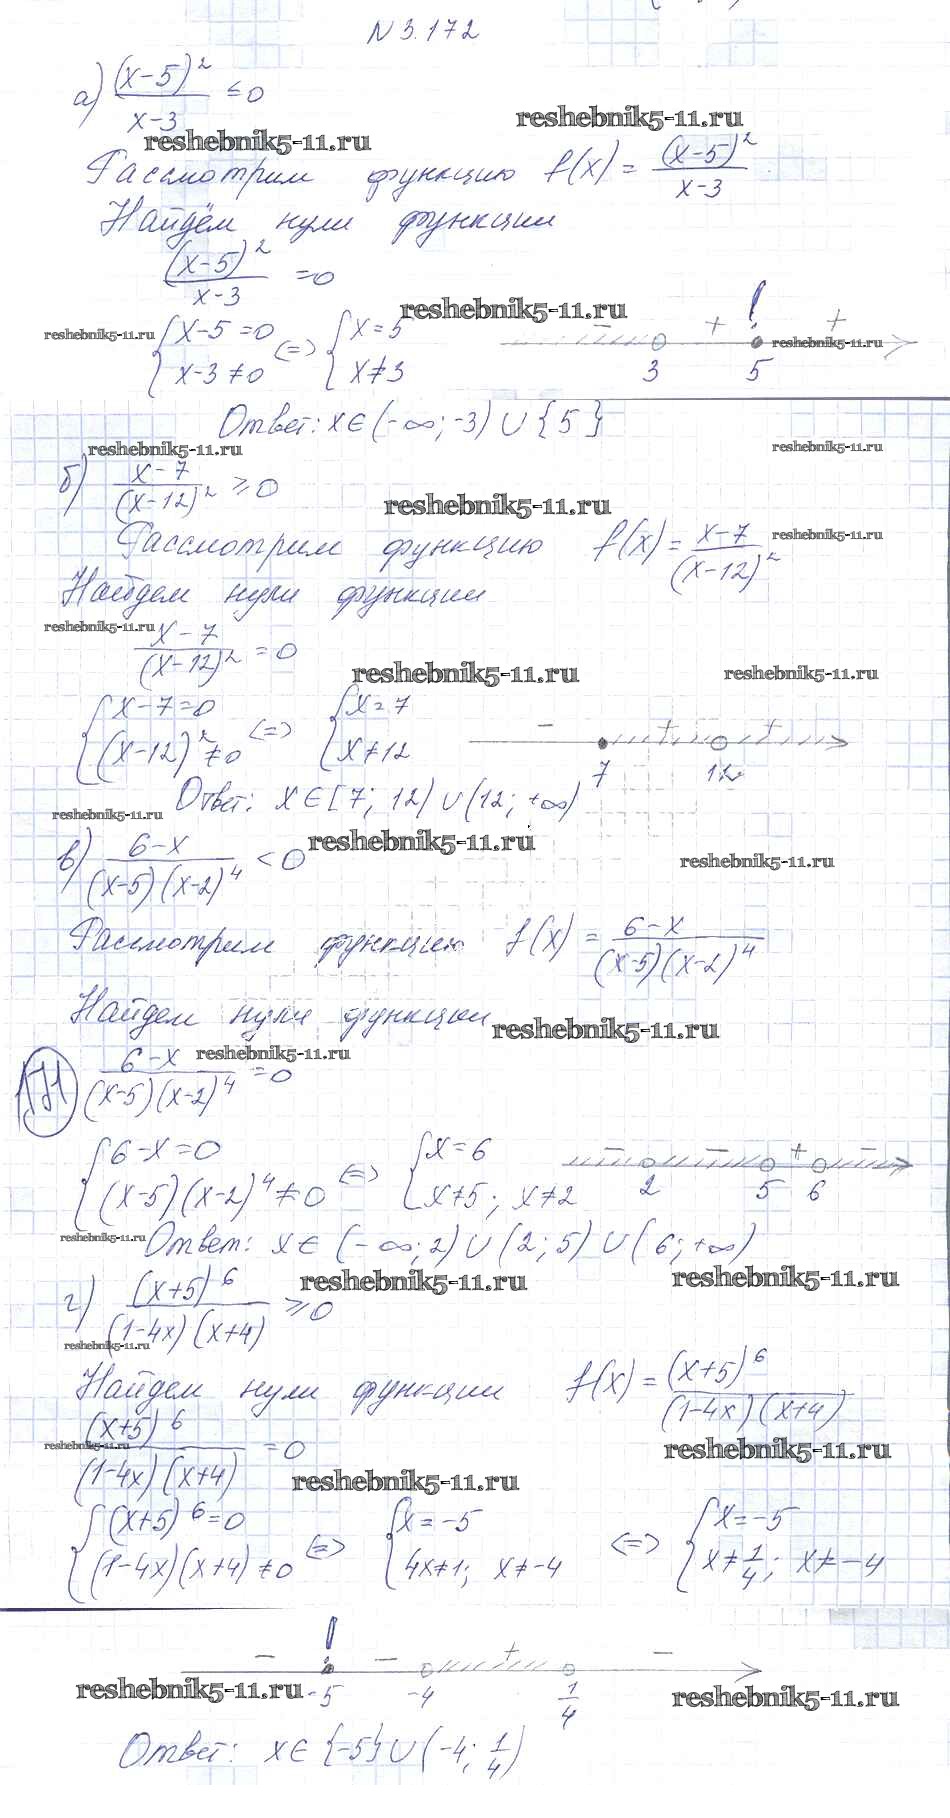 N 3.172
а) (x-5)² / x-3 ≤ 0
reshebnik5-11.ru
reshebnik5-11.ru
Рассмотрим функцию f(x) = (x-5)² / x-3
Найдём нули функции
(x-5)² / x-3 = 0
reshebnik5-11.ru
reshebnik5-11.ru
{ x-5=0 x-3≠0 (=) { x=5 x≠3
- 3 + ! 5 +
reshebnik5-11.ru
Ответ: x∈(-∞;-3)∪{5}
reshebnik5-11.ru
reshebnik5-11.ru
б) x-7 / (x-12)² ≥ 0
reshebnik5-11.ru
Рассмотрим функцию f(x) = x-7 / (x-12)²
reshebnik5-11.ru
Найдем нули функции
reshebnik5-11.ru
x-7 / (x-12)² = 0
reshebnik5-11.ru
reshebnik5-11.ru
{ x-7=0 (x-12)²≠0 (=) { x=7 x≠12
- 7 + 12 +
Ответ: x∈[7; 12)∪(12; +∞)
reshebnik5-11.ru
reshebnik5-11.ru
в) 6-x / (x-5)(x-2)⁴ < 0
reshebnik5-11.ru
Рассмотрим функцию f(x) = 6-x / (x-5)(x-2)⁴
Найдем нули функции
reshebnik5-11.ru
reshebnik5-11.ru
171
6-x / (x-5)(x-2)⁴ = 0
{ 6-x=0 (x-5)(x-2)⁴≠0 (=) { x=6 x≠5; x≠2
- 2 - 5 + 6 -
reshebnik5-11.ru
Ответ: x∈(-∞;2)∪(2;5)∪(6;+∞)
reshebnik5-11.ru
reshebnik5-11.ru
г) (x+5)⁶ / (1-4x)(x+4) ≥ 0
reshebnik5-11.ru
Найдем нули функции f(x) = (x+5)⁶ / (1-4x)(x+4)
(x+5)⁶ / (1-4x)(x+4) = 0
reshebnik5-11.ru
reshebnik5-11.ru
reshebnik5-11.ru
{ (x+5)⁶=0 (1-4x)(x+4)≠0 (=) { x=-5 4x≠1; x≠-4 (=) { x=-5 x≠1/4; x≠-4
- ! -5 - -4 + 1/4 -
reshebnik5-11.ru
reshebnik5-11.ru
Ответ: x∈{-5}∪(-4; 1/4)